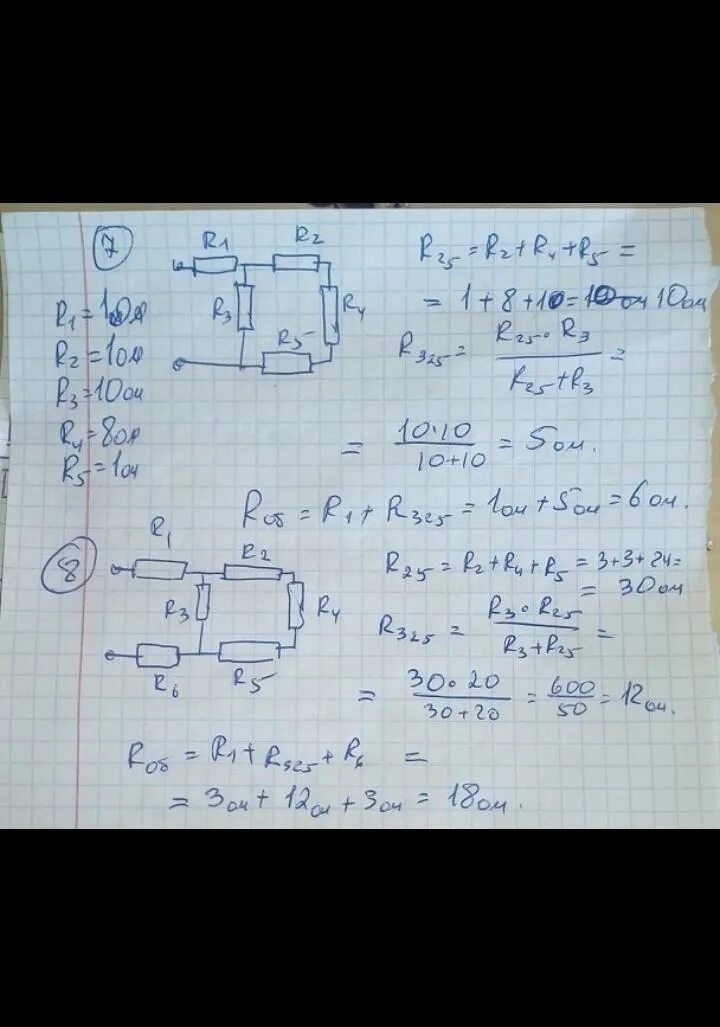 7
R1 R2
R3 R4
R5
R1 = 1ом
R2 = 1ом
R3 = 10ом
R4 = 8ом
R5 = 1ом
R25 = R2 + R4 + R5 =
= 1 + 8 + 1 = 10ом
R325 = R25 · R3 / R25 + R3 =
= 10·10 / 10+10 = 5ом.
Rоб = R1 + R325 = 1ом + 5ом = 6ом.
8
R1 R2
R3 R4
R6 R5
R25 = R2 + R4 + R5 = 3 + 3 + 24 =
= 30ом
R325 = R3 · R25 / R3 + R25 =
= 30 · 20 / 30 + 20 = 600 / 50 = 12ом.
Rоб = R1 + R325 + R6 =
= 3ом + 12ом + 3ом = 18ом.